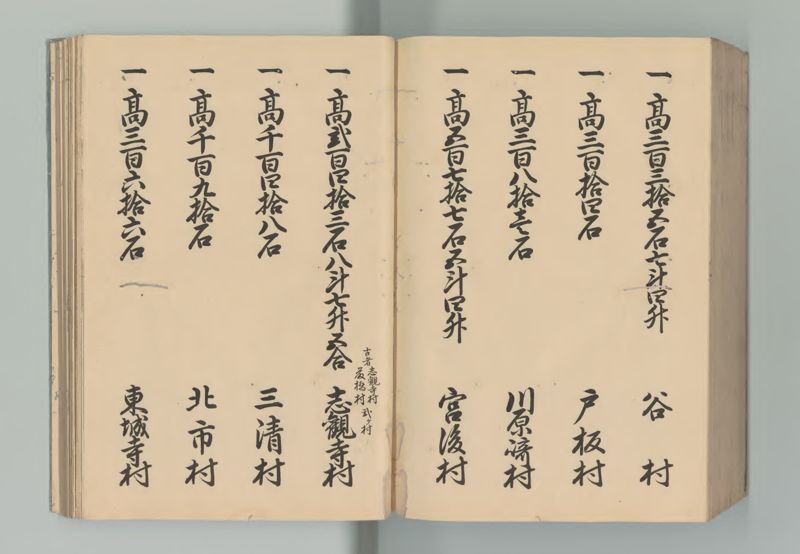 一 高三百三拾五石七斗四升 谷村
一 高三百拾四石 戸板村
一 高三百八拾壱石 川原済村
一 高五百七拾七石五斗四升 宮後村
古者志観寺村
藤橋村 弐ヶ村
一 高弐百四拾三石八斗七升五合 志観寺村
一 高千百四拾八石 三清村
一 高千百九拾石 北市村
一 高三百六拾六石 東城寺村